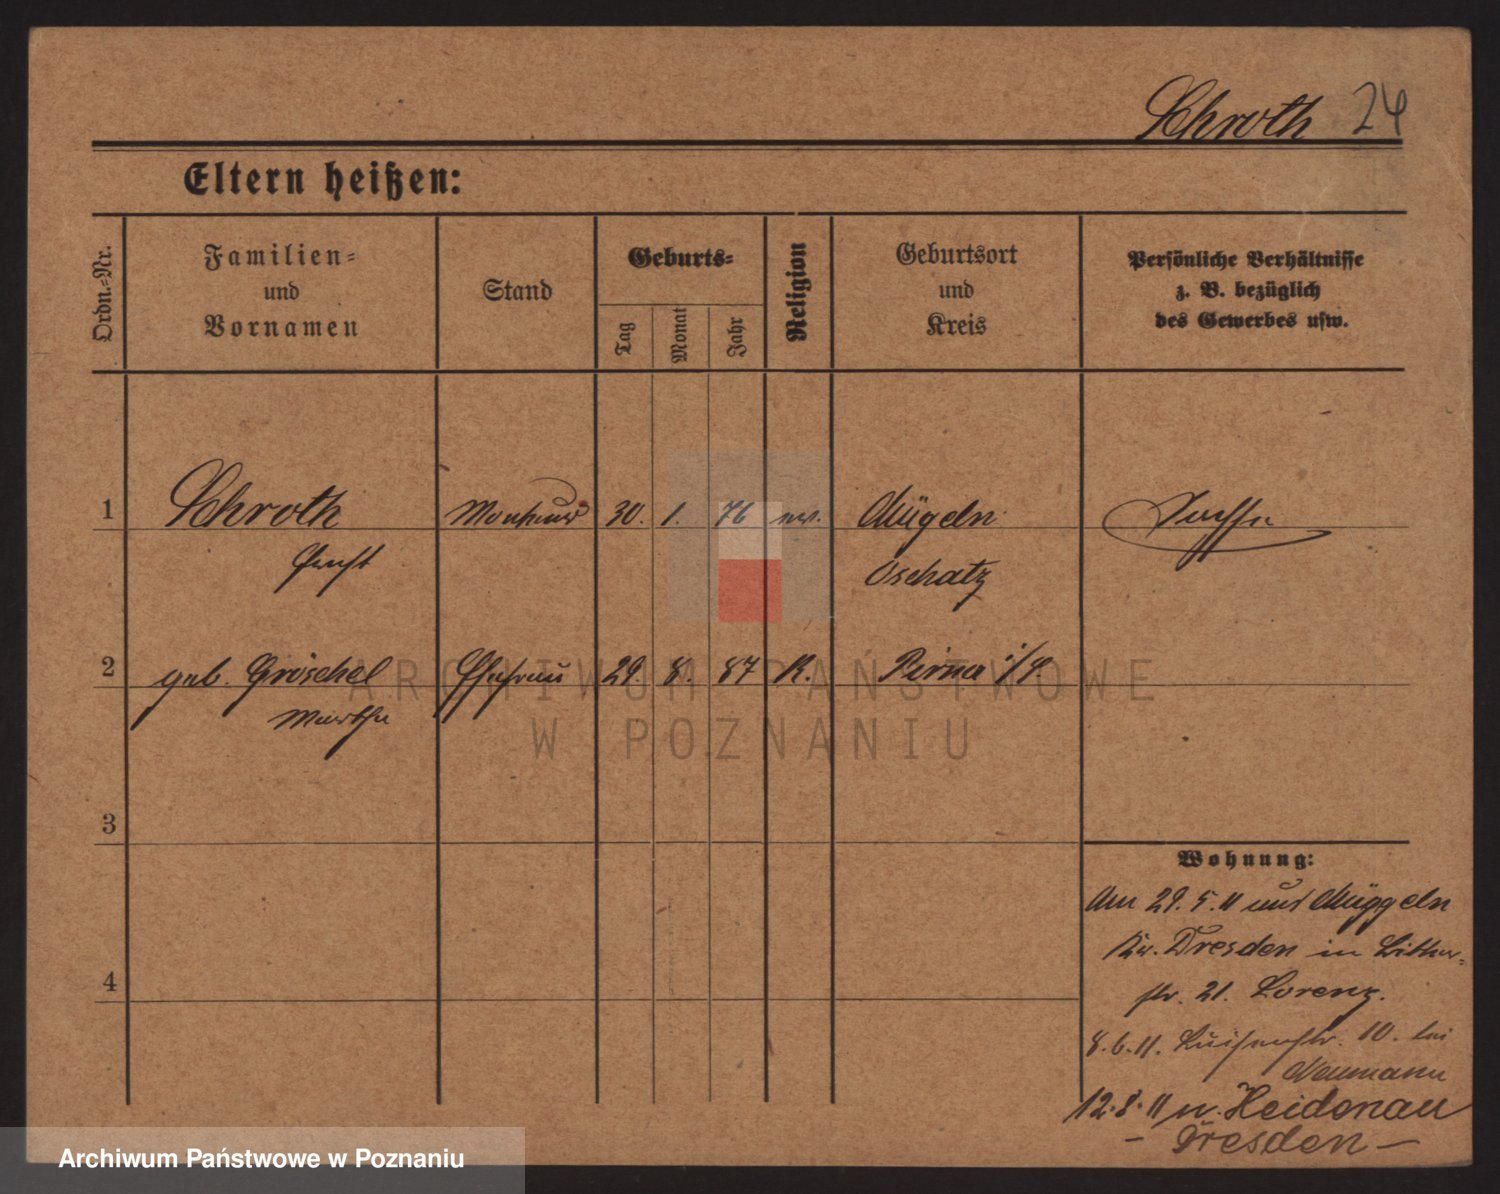 Schroth 24
Eltern heißen:
Ordn.-Nr.
Familien-
und
Vornamen
Stand
Geburts-
Tag
Monat
Jahr
Religion
Geburtsort
und
Kreis
Persönliche Verhältnisse
z. B. bezüglich
des Gewerbes usw.
1 Schroth Monteur 30. 1. 76 ev. Mügeln Sachse
Ernst Oschatz
2 geb. Gröschel Ehefrau 29. 8. 87 K. Pirna i/S.
Martha
3
4
Wohnung:
Am 29.5.11 aus Müggeln
Kr. Dresden in
str. 21. Lorenz.
8.6.11. Luisenstr. 10. bei
Neumann
12.8.11 n. Heidenau
– Dresden –
ARCHIWUM PAŃSTWOWE
W POZNANIU
Archiwum Państwowe w Poznaniu